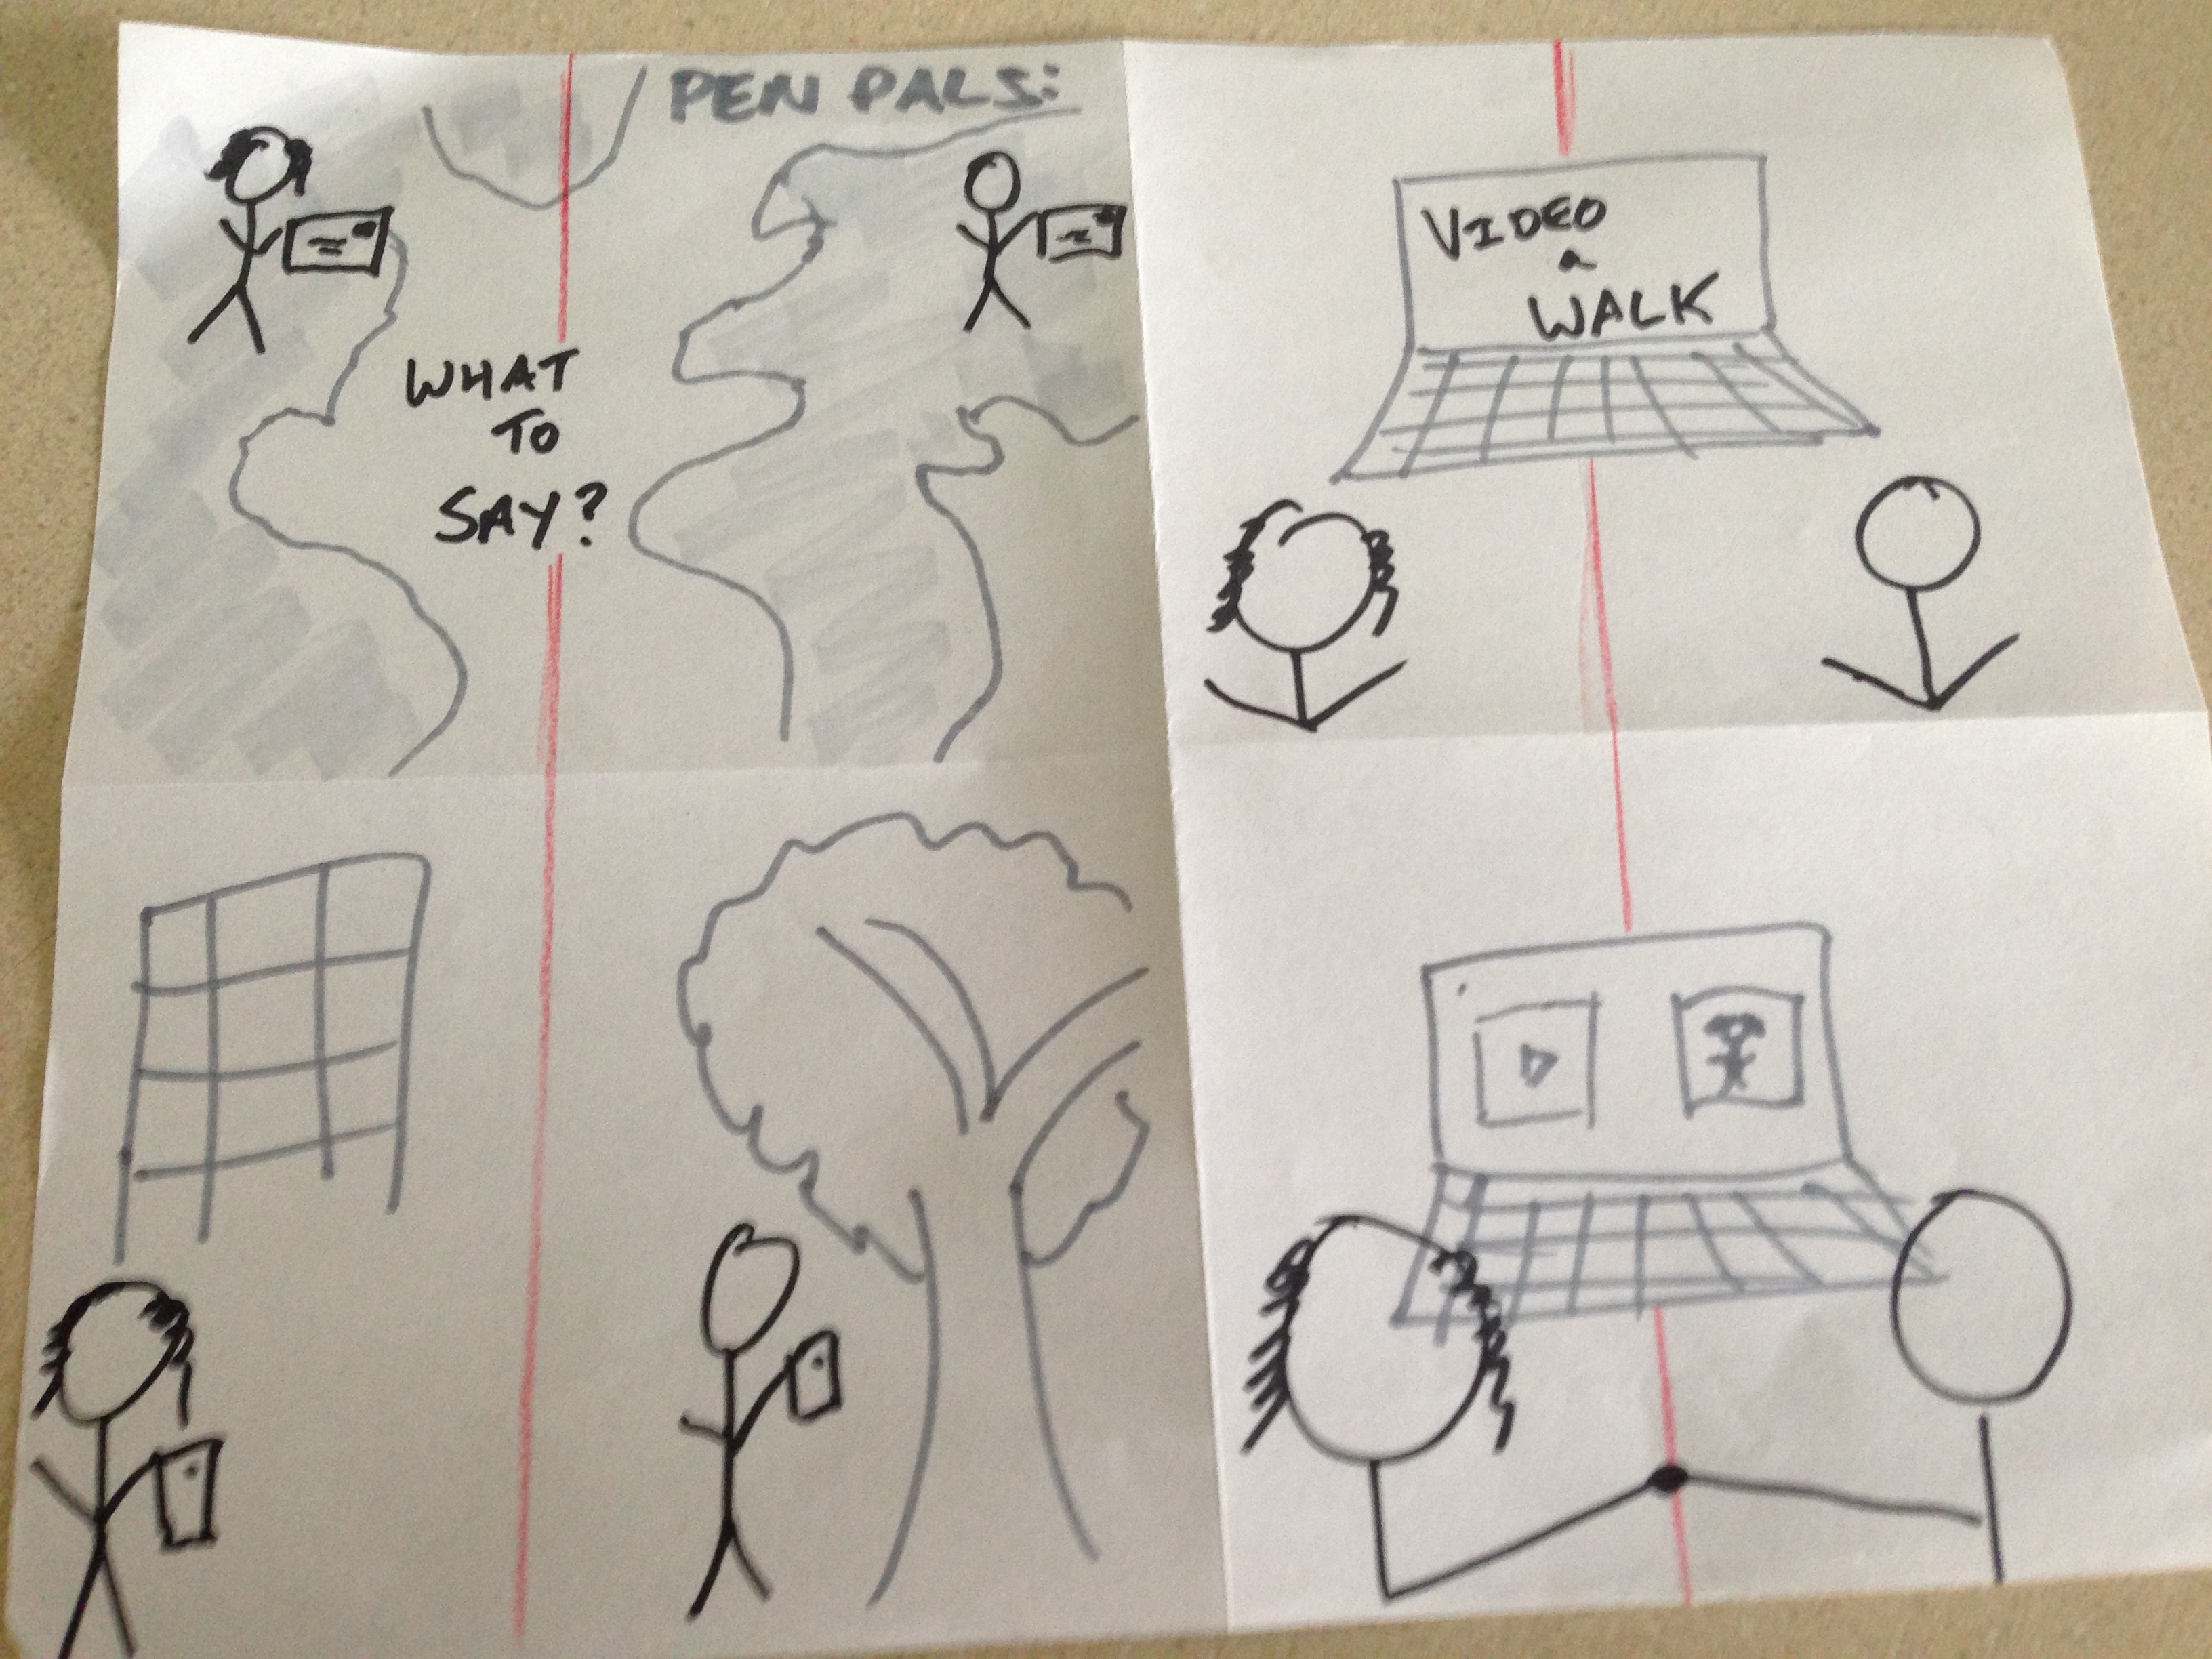 PEN PALS:
WHAT
TO
SAY?
VIDEO
a
WALK